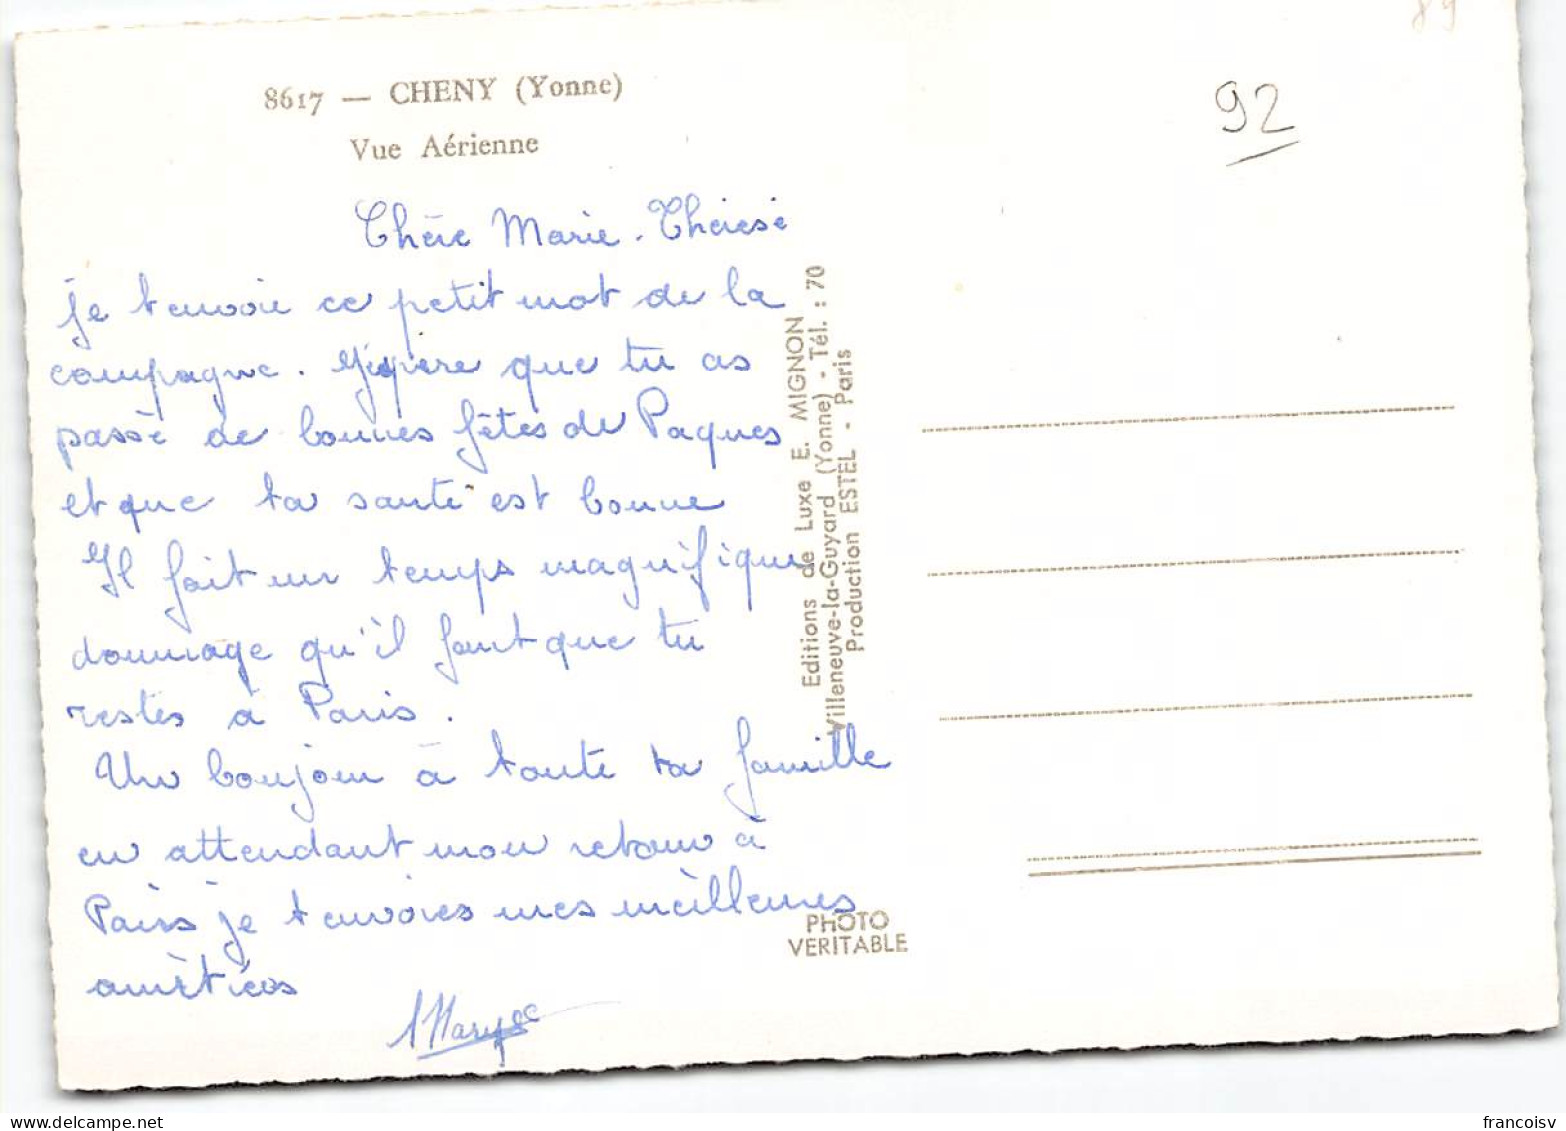 89
92
8617 — CHENY (Yonne)
Vue Aérienne
Chère Marie-Thérèse
je t'envoie ce petit mot de la
campagne. J'éspère que tu as
passé de bonnes fêtes de Paques
et que ta santé est bonne
Il fait un temps magnifique
dommage qu'il faut que tu
restes à Paris.
Un bonjour à toute ta famille
en attendant mon retour à
Paris je t'envoies mes meilleures
amitiées
Maryse
Editions de Luxe E. MIGNON
Villeneuve-la-Guyard (Yonne) - Tél. : 70
Production ESTEL - Paris
PHOTO
VERITABLE
www.delcampe.net
francoisv